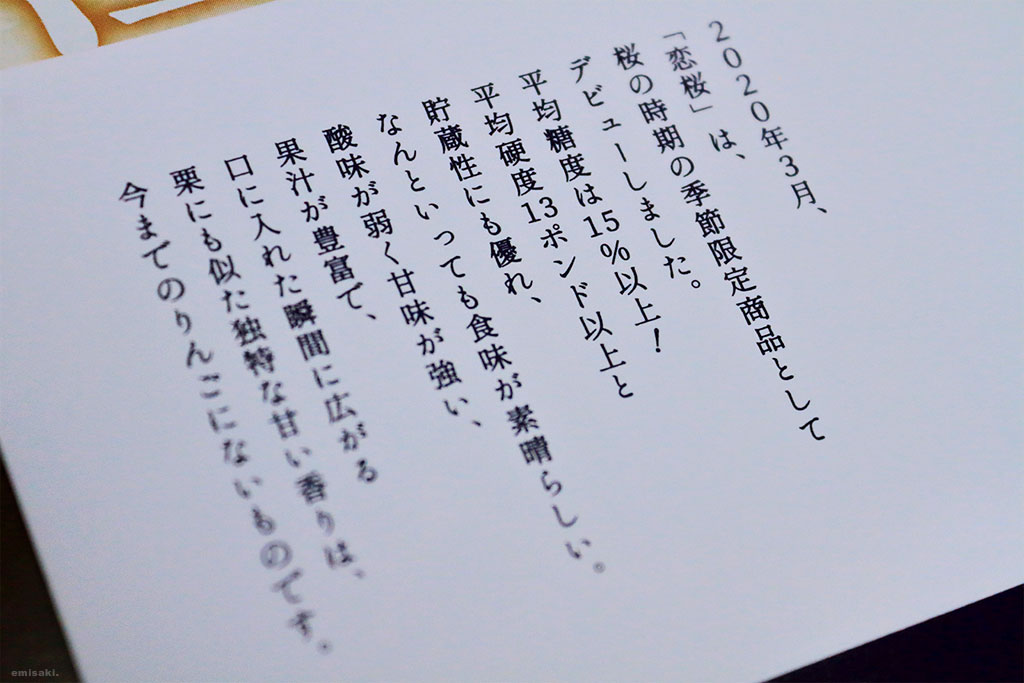 2020年3月、
「恋桜」は、
桜の時期の季節限定商品として
デビューしました。
平均糖度は15％以上！
平均硬度13ポンド以上と
貯蔵性にも優れ、
なんといっても食味が素晴らしい。
酸味が弱く甘味が強い、
果汁が豊富で、
口に入れた瞬間に広がる
栗にも似た独特な甘い香りは、
今までのりんごにないものです。
emisaki.